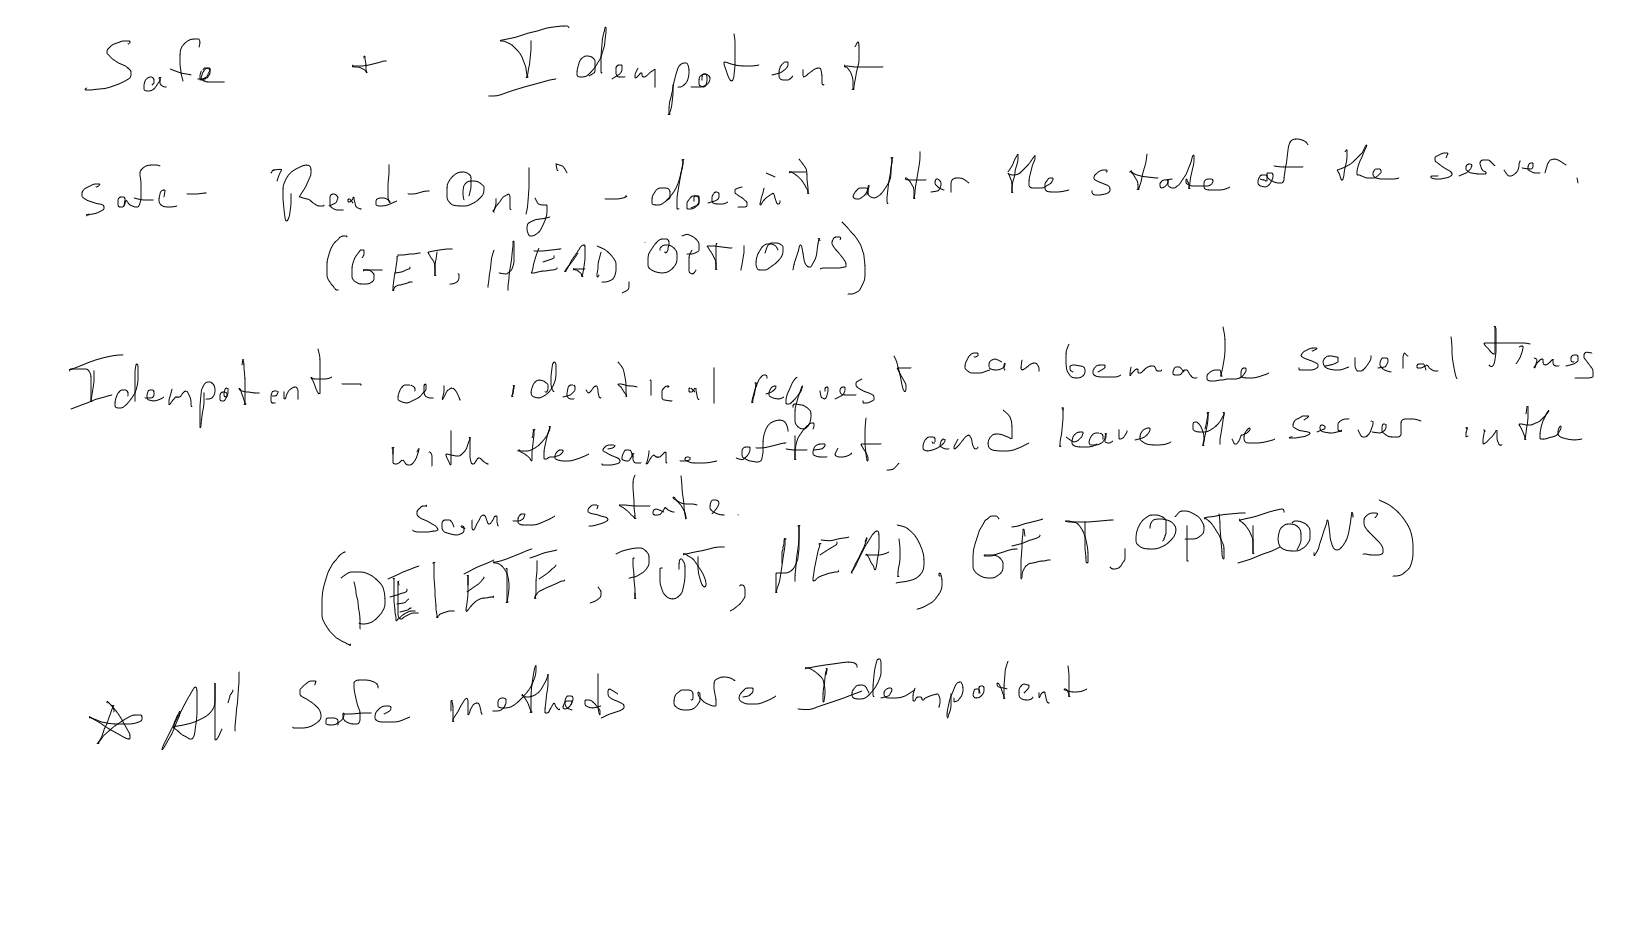 Safe + Idempotent
Safe - "Read-Only" - doesn't alter the state of the server.
(GET, HEAD, OPTIONS)
Idempotent - an identical request can be made several times
with the same effect, and leave the server in the
same state.
(DELETE, PUT, HEAD, GET, OPTIONS)
☆ All Safe methods are Idempotent